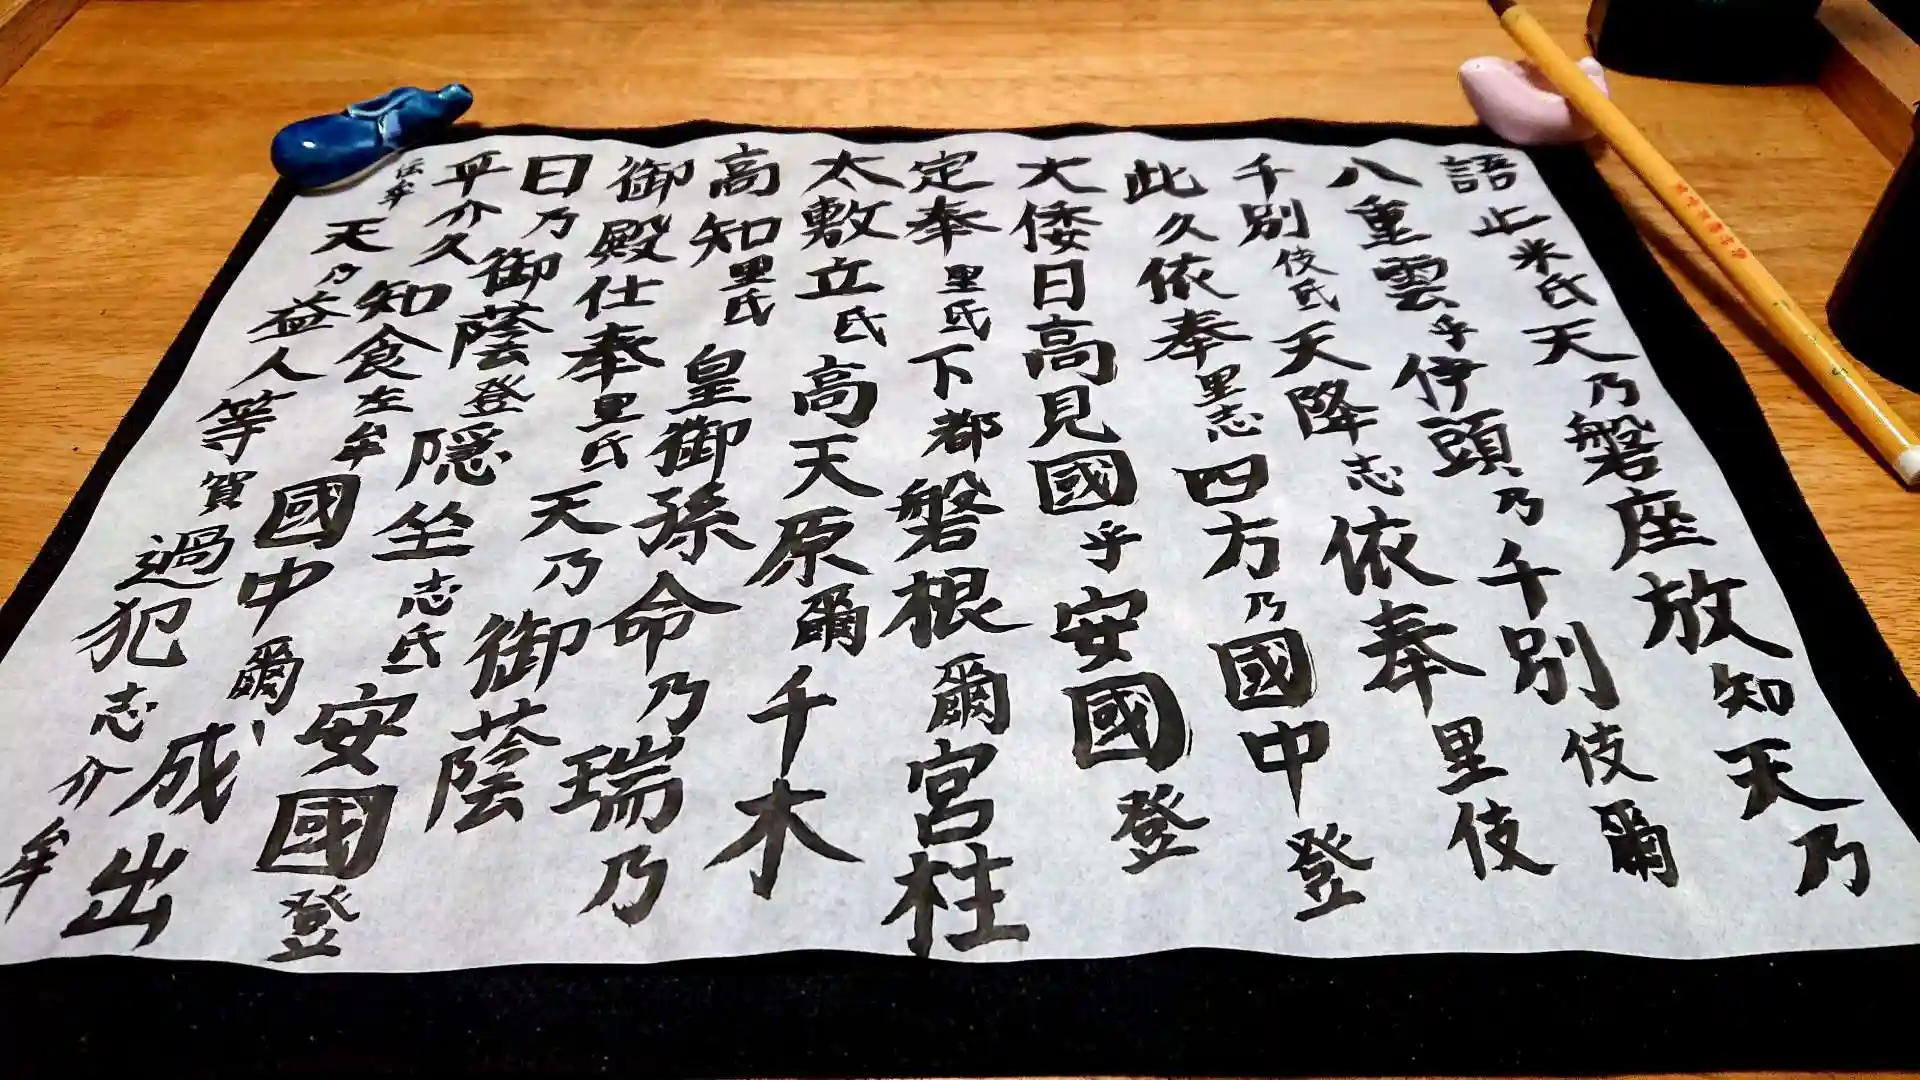 語止米氐天乃磐座放知天乃
八重雲乎伊頭乃千別伎爾
千別伎氐天降志依奉里伎
此久依奉里志四方乃國中登
大倭日高見國乎安國登
定奉里氐下都磐根爾宮柱
太敷立氐高天原爾千木
高知里氐皇御孫命乃瑞乃
御殿仕奉里氐天乃御蔭
日乃御蔭登隠坐志氐安國登
平介久知食左牟國中爾成出
伝牟天乃益人等賀過犯志介牟